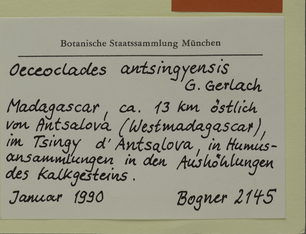 Botanische Staatssammlung München
Oeceoclades antsingyensis
G. Gerlach
Madagascar, ca. 13 km östlich
von Antsalova (Westmadagascar),
im Tsingy d'Antsalova, in Humus-
ansammlungen in den Aushöhlungen
des Kalkgesteins.
Januar 1990 Bogner 2145